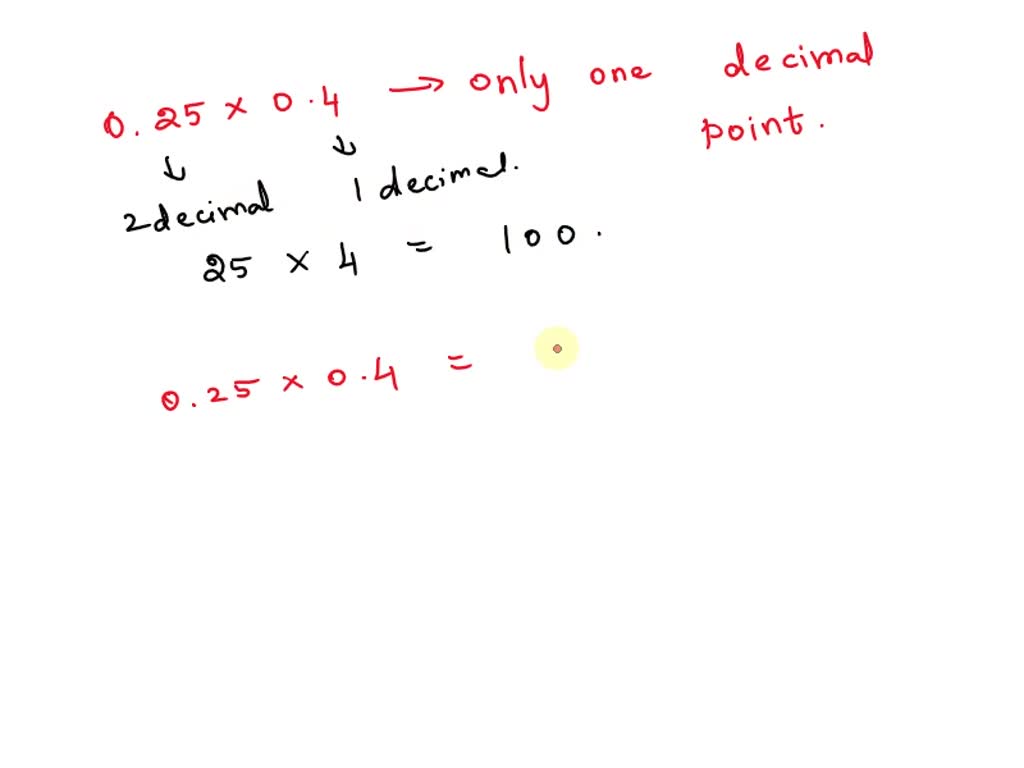 0.25 × 0.4 → only one decimal
point.
↓ ↓
2 decimal 1 decimal.
25 × 4 = 100.
0.25 × 0.4 =